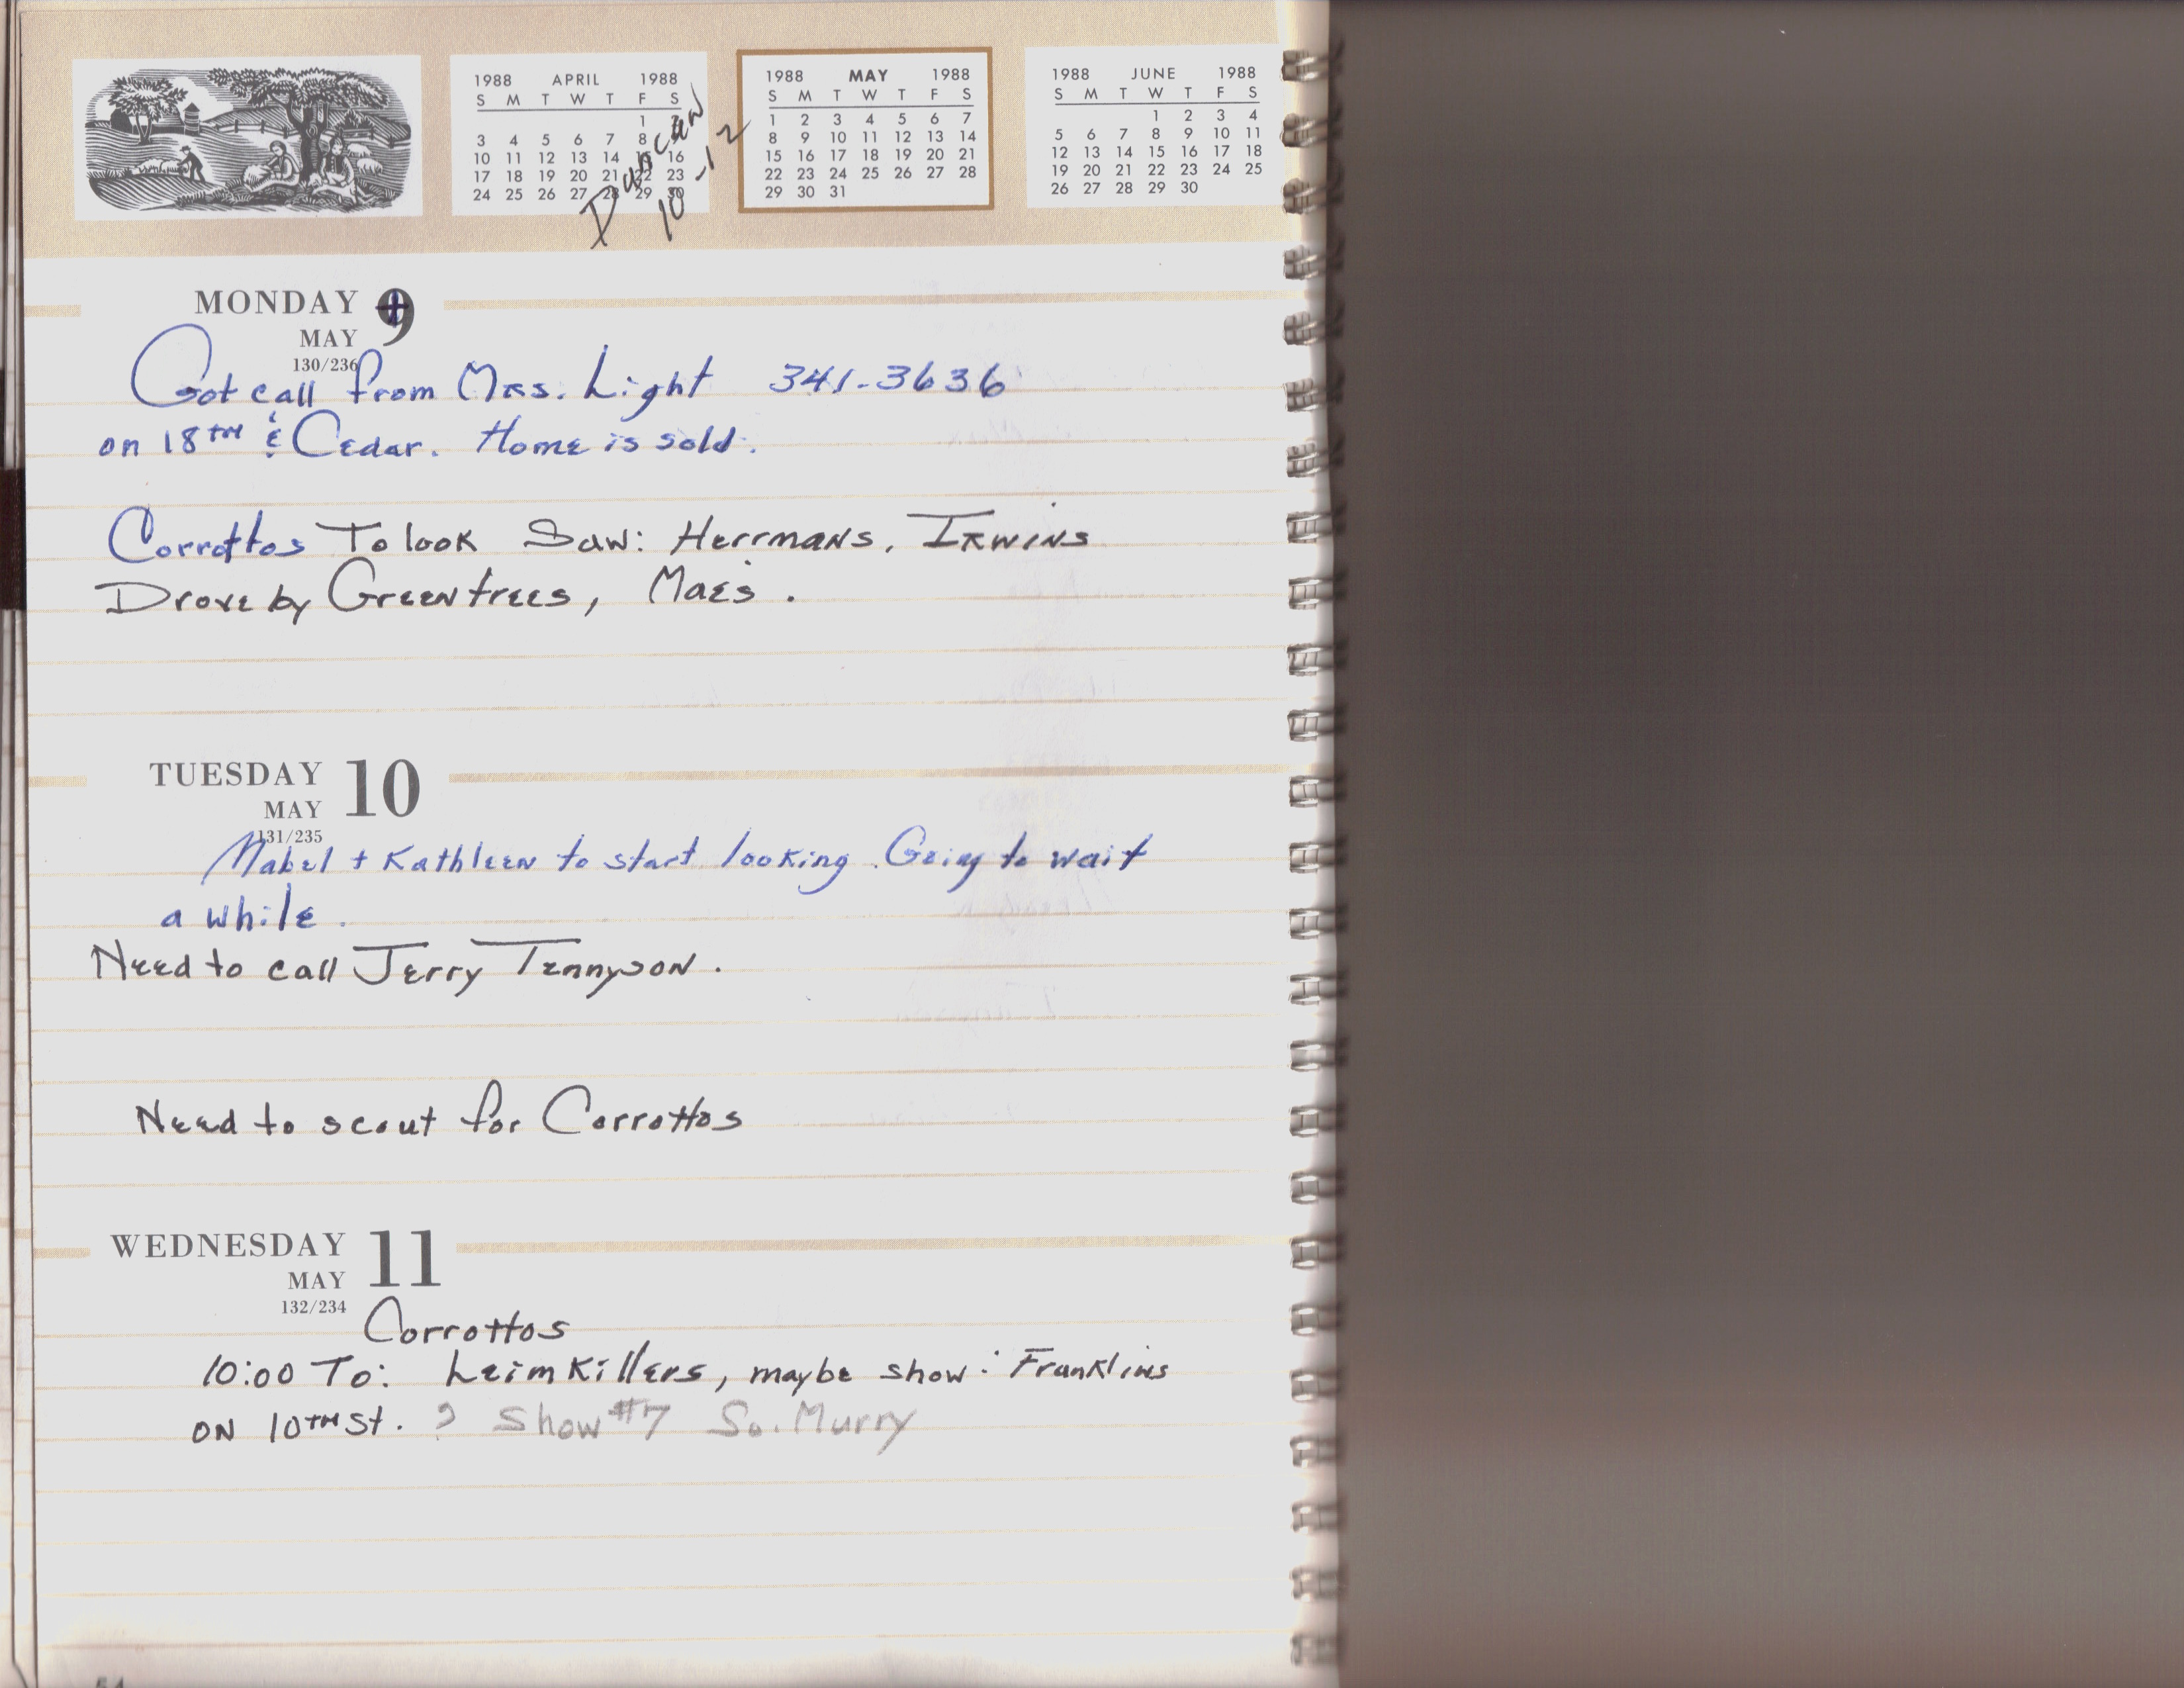 1988 APRIL 1988
S M T W T F S
1 2
3 4 5 6 7 8
10 11 12 13 14 15 16
17 18 19 20 21 22 23
24 25 26 27 28 29 30
Duncan
10-12
1988 MAY 1988
S M T W T F S
1 2 3 4 5 6 7
8 9 10 11 12 13 14
15 16 17 18 19 20 21
22 23 24 25 26 27 28
29 30 31
1988 JUNE 1988
S M T W T F S
1 2 3 4
5 6 7 8 9 10 11
12 13 14 15 16 17 18
19 20 21 22 23 24 25
26 27 28 29 30
MONDAY 9
MAY
130/236
Got call from Mrs. Light 341-3636
on 18TH & Cedar. Home is sold.
Corrottos To look Saw: Herrmans, Irwins
Drove by Greentrees, Maes.
TUESDAY 10
MAY
131/235
Mabel + Kathleen to start looking. Going to wait
a while.
Need to call Jerry Tennyson.
Need to scout for Corrottos
WEDNESDAY 11
MAY
132/234
Corrottos
10:00 To: Leimkillers, maybe show: Franklins
ON 10TH St. ? Show #7 So. Murry